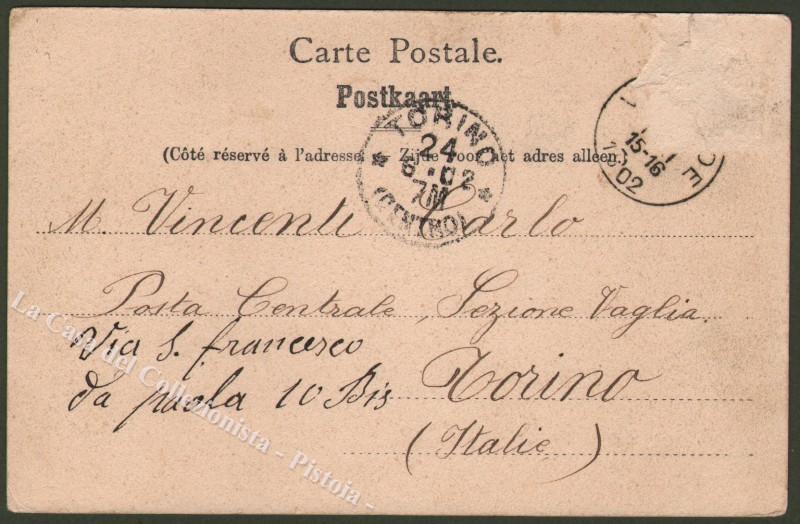 Carte Postale.
Postkaart.
(Côté réservé à l'adresse. Zijde voor het adres alleen.)
TORINO
24
02
7M
(CENTRO)
15-16
1902
M. Vincenti Carlo
Posta Centrale, Sezione Vaglia.
Via S. francesco
da paola 10 Bis
Torino
(Italie)
La Casa del Collezionista - Pistoia -